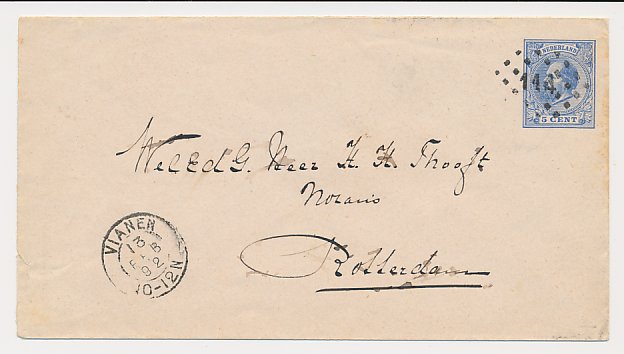 NEDERLAND
5 CENT
WelEdG. Heer H. H. Thooft
Notaris
Rotterdam
VIANEN
10-12N